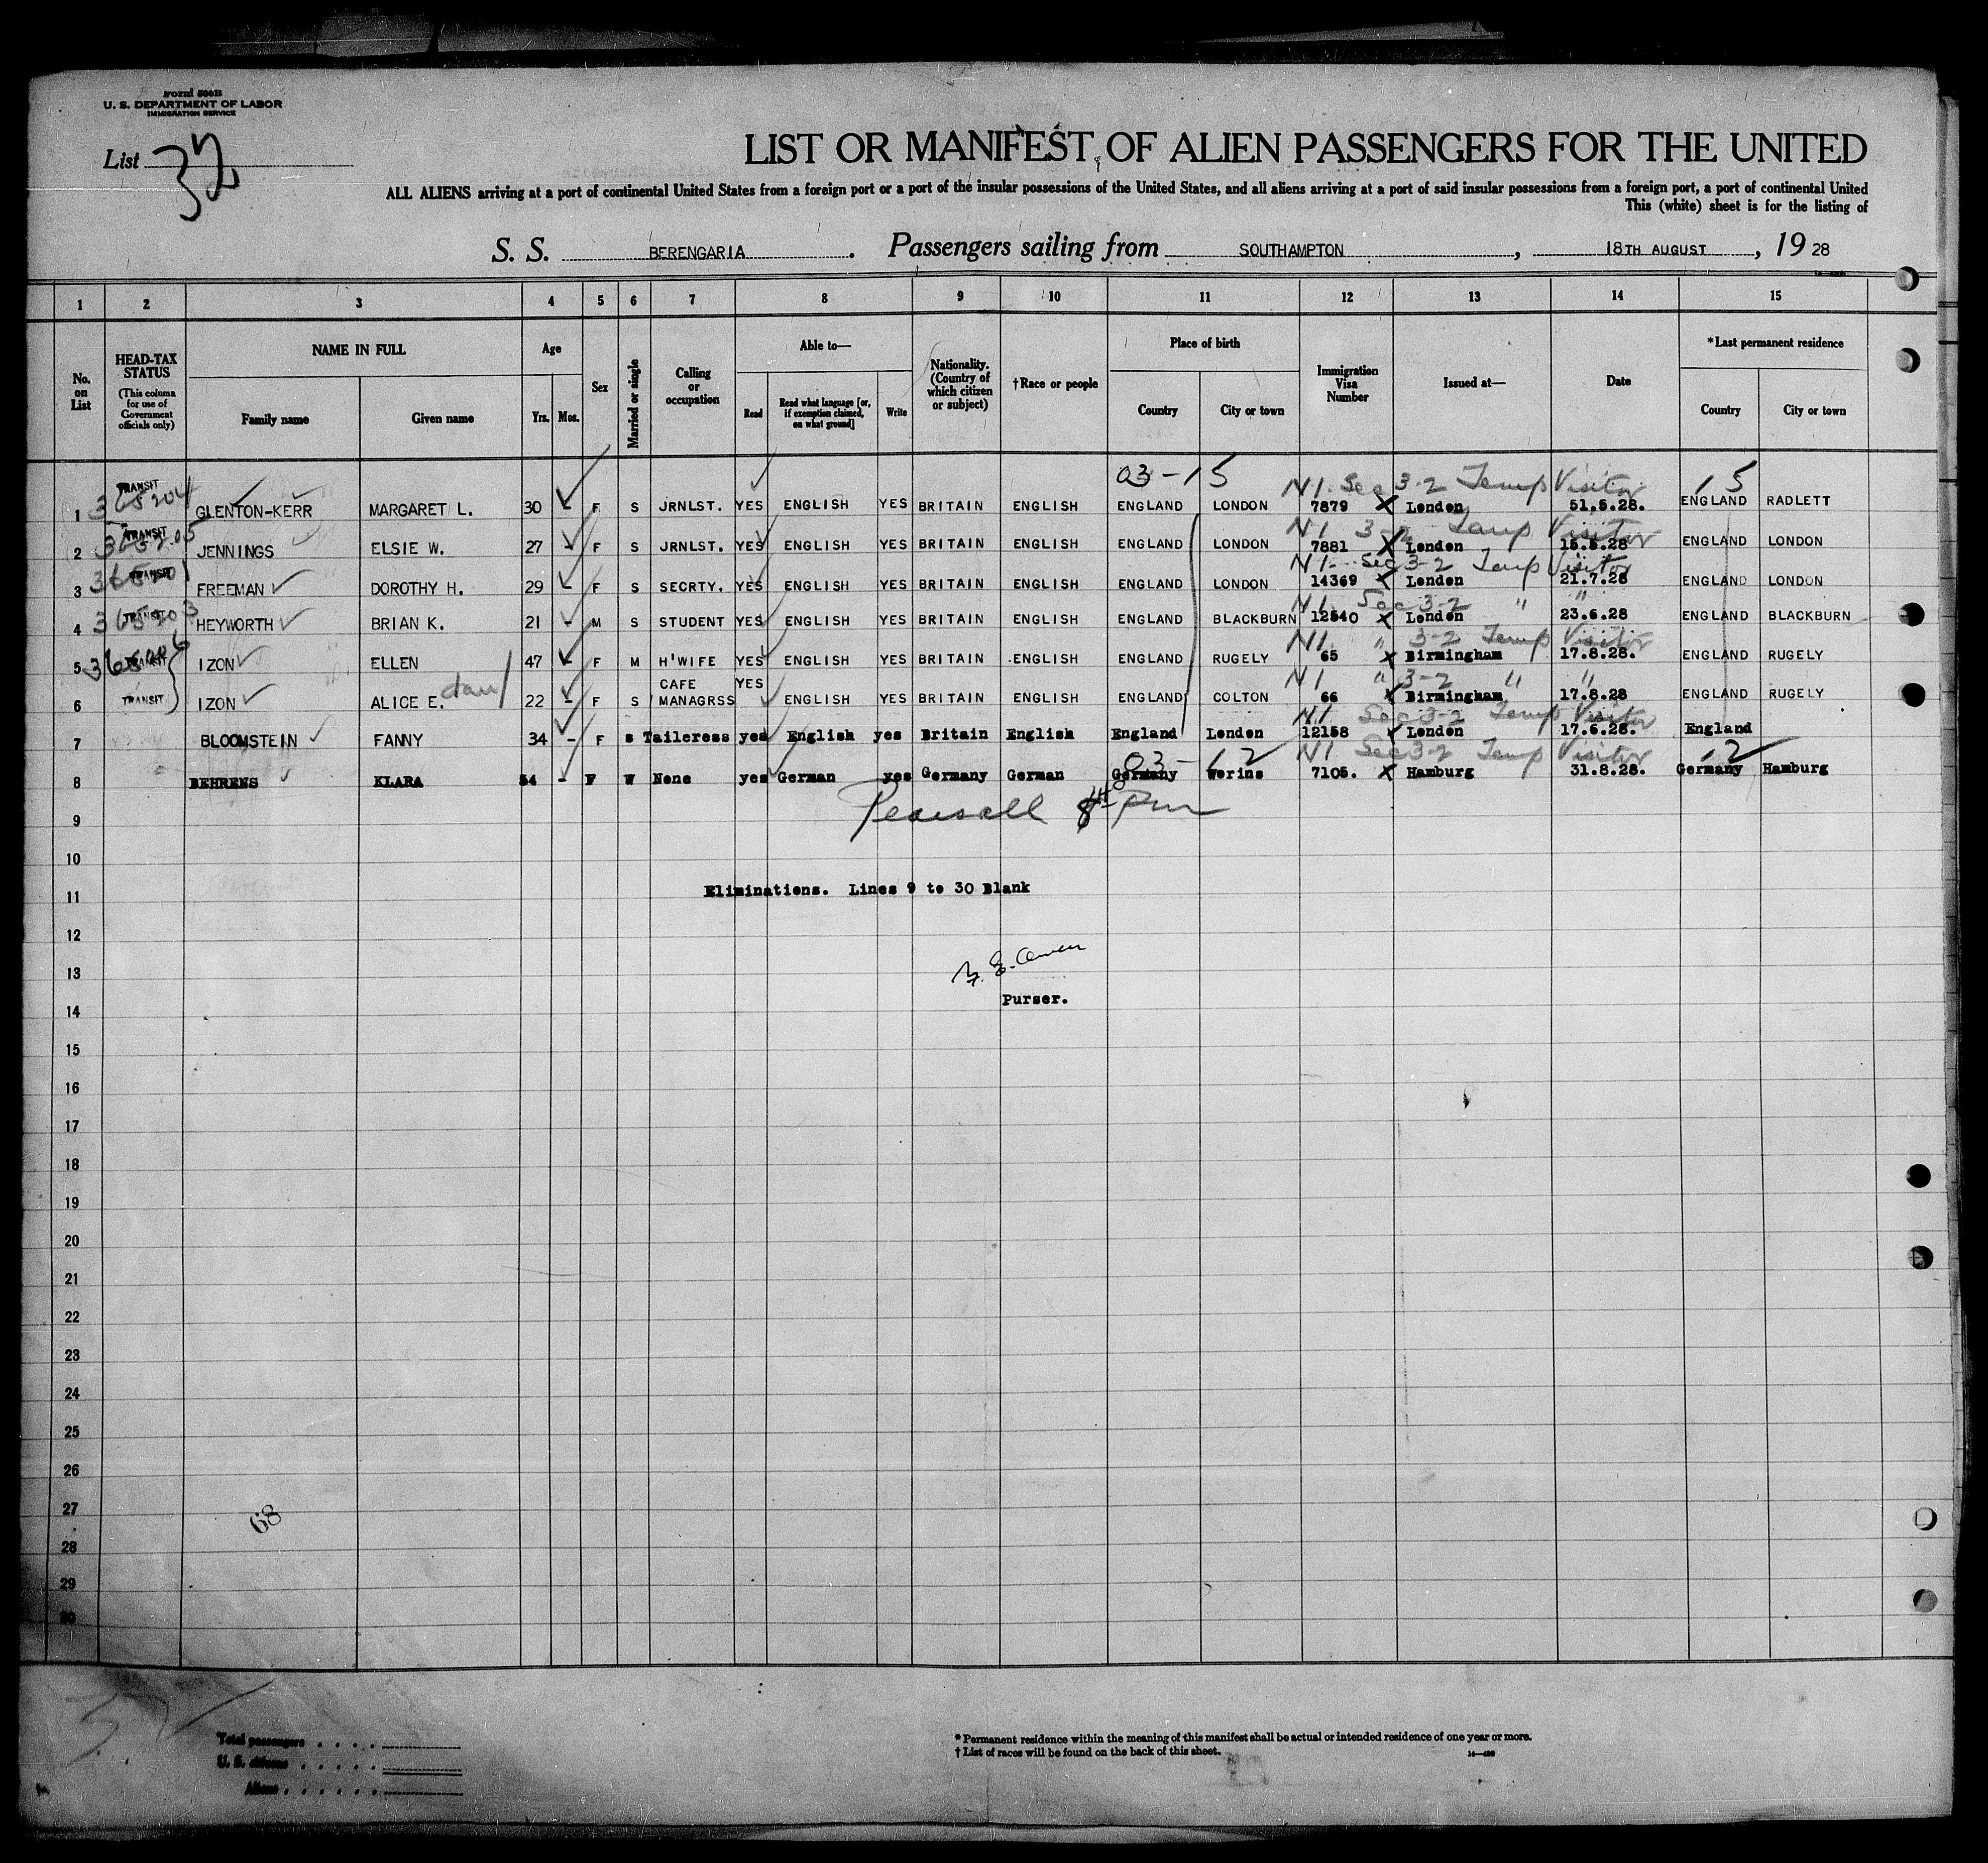 Form 500B
U. S. DEPARTMENT OF LABOR
IMMIGRATION SERVICE
List 32
LIST OR MANIFEST OF ALIEN PASSENGERS FOR THE UNITED
ALL ALIENS arriving at a port of continental United States from a foreign port or a port of the insular possessions of the United States, and all aliens arriving at a port of said insular possessions from a foreign port, a port of continental United
This (white) sheet is for the listing of
S. S. BERENGARIA. Passengers sailing from SOUTHAMPTON, 18TH AUGUST, 19 28
1 2 3 4 5 6 7 8 9 10 11 12 13 14 15
No. on List
HEAD-TAX STATUS (This column for use of Government officials only)
NAME IN FULL Family name Given name
Age Yrs. Mos.
Sex
Married or single
Calling or occupation
Able to— Read Read what language [or, if exemption claimed, on what ground] Write
Nationality. (Country of which citizen or subject)
†Race or people
Place of birth Country City or town
Immigration Visa Number
Issued at—
Date
*Last permanent residence Country City or town
03-15 N1. Sec 3-2 Temp Visitor 15
1 TRANSIT 365204 GLENTON-KERR MARGARET L. 30 - F S JRNLST. YES ENGLISH YES BRITAIN ENGLISH ENGLAND LONDON 7879 X London 51.5.28. ENGLAND RADLETT
N1. 3-2 Temp Visitor
2 TRANSIT 365205 JENNINGS ELSIE W. 27 - F S JRNLST. YES ENGLISH YES BRITAIN ENGLISH ENGLAND LONDON 7881 X London 15.5.28 ENGLAND LONDON
N1. Sec 3-2 Temp Visitor
3 TRANSIT 365201 FREEMAN DOROTHY H. 29 - F S SECRTY. YES ENGLISH YES BRITAIN ENGLISH ENGLAND LONDON 14369 X London 21.7.28 ENGLAND LONDON
N1. Sec 3-2 " "
4 TRANSIT 365203 HEYWORTH BRIAN K. 21 M S STUDENT YES ENGLISH YES BRITAIN ENGLISH ENGLAND BLACKBURN 12540 X London 23.6.28 ENGLAND BLACKBURN
N1. " 3-2 Temp Visitor
5 TRANSIT 365206 IZON ELLEN 47 - F M H'WIFE YES ENGLISH YES BRITAIN ENGLISH ENGLAND RUGELY 65 X Birmingham 17.8.28. ENGLAND RUGELY
N1 " 3-2 " "
6 TRANSIT IZON ALICE E. dau 22 - F S CAFE MANAGRSS YES ENGLISH YES BRITAIN ENGLISH ENGLAND COLTON 66 X Birmingham 17.8.28 ENGLAND RUGELY
N1. Sec 3-2 Temp Visitor
7 BLOOMSTEIN FANNY 34 - F S Tailoress yes English yes Britain English England London 12158 London 17.6.28. England
03-12 N1 Sec 3-2 Temp Visitor 12
8 BEHRENS KLARA 54 - F W None yes German yes Germany German Germany Werins 7105. X Hamburg 31.8.28. Germany Hamburg
9
10
11 Eliminations. Lines 9 to 30 Blank
12
13
14 Purser.
15
16
17
18
19
20
21
22
23
24
25
26
27
68
28
29
30
Total passengers
U. S. citizens
Aliens
* Permanent residence within the meaning of this manifest shall be actual or intended residence of one year or more.
† List of races will be found on the back of this sheet.